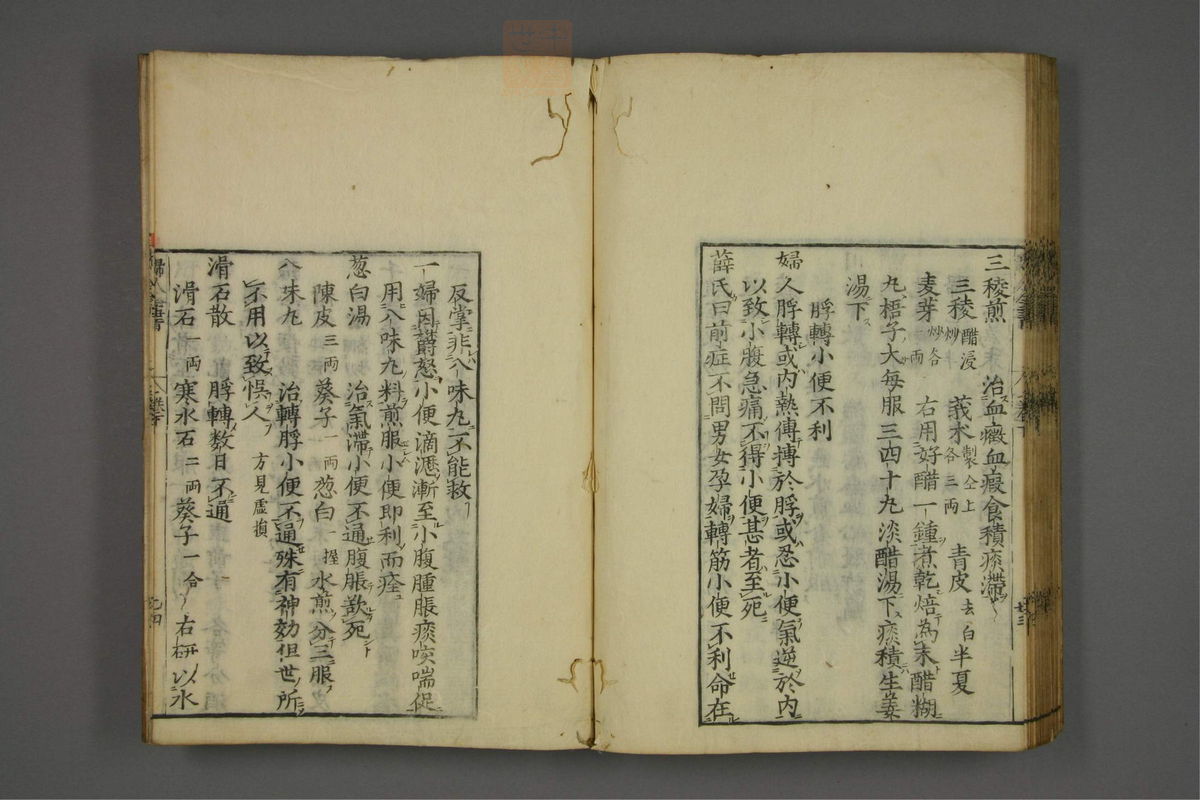 三稜煎　治血癥血瘕食積痰滯
三稜醋浸炒　莪朮製仝上各三両　青皮去白半夏
麦芽炒各一両　右用好醋一鍾煮乾焙為末醋糊
丸梧子大每服三四十丸淡醋湯下痰積生姜
湯下
脬轉小便不利
婦人脬轉或内熱傳搏於脬或忍小便氣逆於内
以致小腹急痛不得小便甚者至死
薛氏曰前症不問男女孕婦轉筋小便不利命在
反掌非八味丸不能救
一婦因欝怒小便滴瀝漸至小腹腫脹痰咳喘促
用八味丸料煎服小便即利而痊
葱白湯　治氣滯小便不通腹脹欬死
陳皮三両葵子一両葱白一握水煎分三服
八味丸　治轉脬小便不通殊有神効但世所
不用以致悞人　方見虚損
滑石散　脬轉数日不通
滑石一両寒水石二両葵子一合右研以水